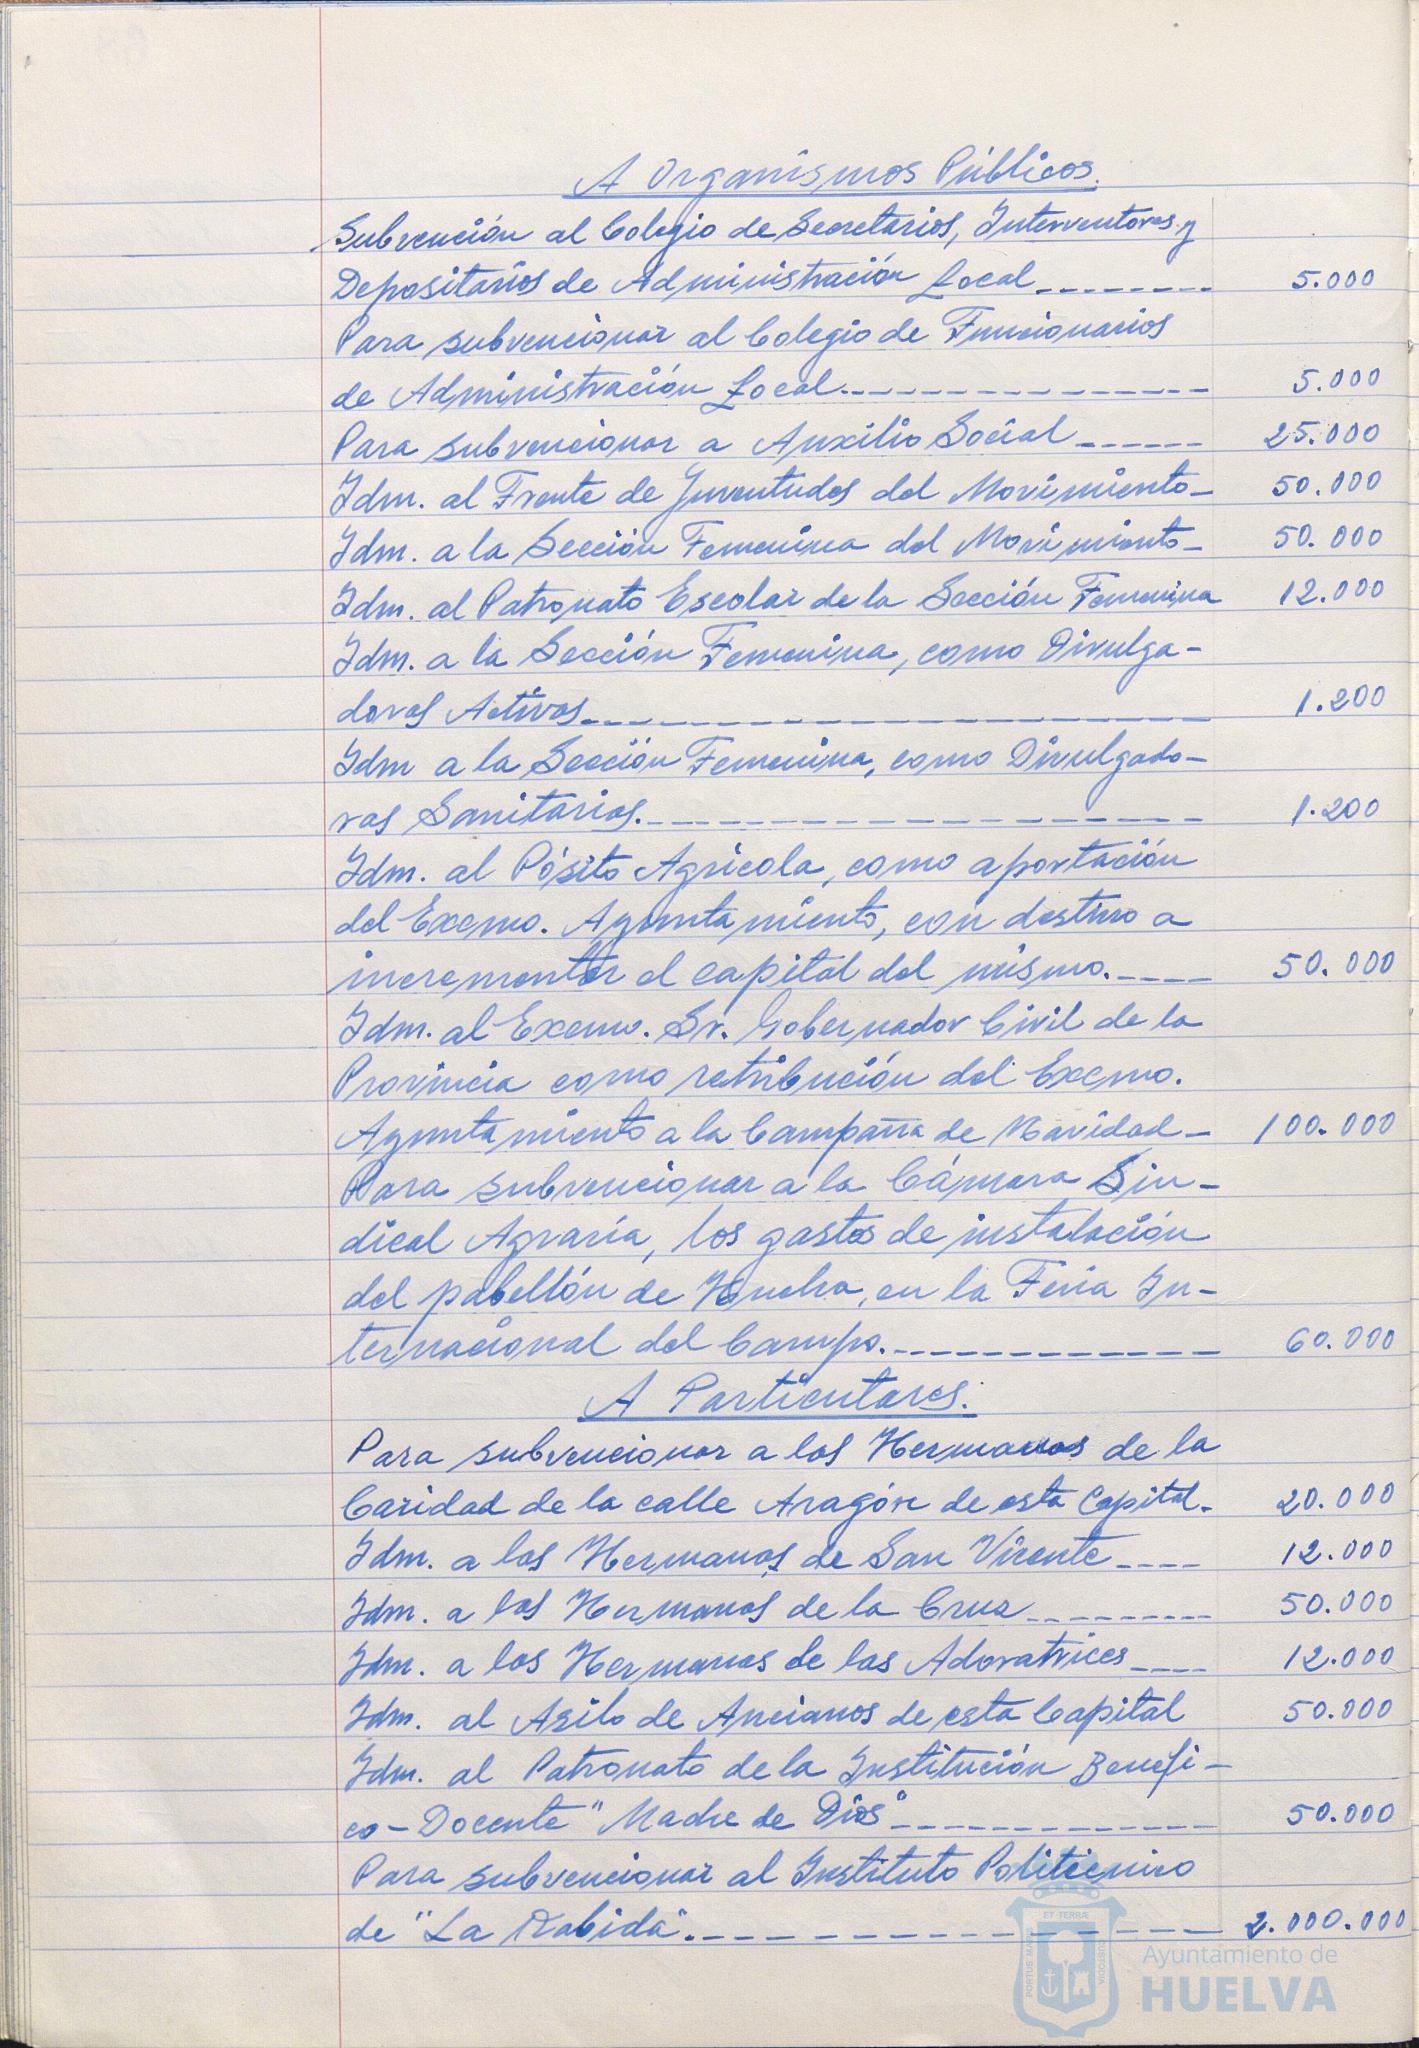 A Organismos Públicos.
Subvención al Colegio de Secretarios, Interventores y
Depositarios de Administración Local -------- 5.000
Para subvencionar al Colegio de Funcionarios
de Administración Local ------------- 5.000
Para subvencionar a Auxilio Social ------ 25.000
Idm. al Frente de Juventudes del Movimiento- 50.000
Idm. a la Sección Femenina del Movimiento- 50.000
Idm. al Patronato Escolar de la Sección Femenina 12.000
Idm. a la Sección Femenina, como Divulga-
doras Activas -------------------- 1.200
Idm a la Sección Femenina, como Divulgado-
ras Sanitarias. ------------------ 1.200
Idm. al Pósito Agrícola, como aportación
del Excmo. Ayuntamiento, con destino a
incrementar el capital del mismo. ---- 50.000
Idm. al Excmo. Sr. Gobernador Civil de la
Provincia como retribución del Excmo.
Ayuntamiento a la Campaña de Navidad - 100.000
Para subvencionar a la Cámara Sin-
dical Agraria, los gastos de instalación
del pabellón de Huelva, en la Feria In-
ternacional del Campo. ------------ 60.000
A Particulares.
Para subvencionar a las Hermanas de la
Caridad de la calle Aragón de esta Capital. 20.000
Idm. a las Hermanas de San Vicente ---- 12.000
Idm. a las Hermanas de la Cruz --------- 50.000
Idm. a las Hermanas de las Adoratrices ---- 12.000
Idm. al Asilo de Ancianos de esta Capital 50.000
Idm. al Patronato de la Institución Benefi-
co-Docente "Madre de Dios" ------------- 50.000
Para subvencionar al Instituto Politécnico
de "La Rabida". --------------- 2.000.000
ET TERRÆ
PORTUS MARIS
CUSTODIA
Ayuntamiento de
HUELVA